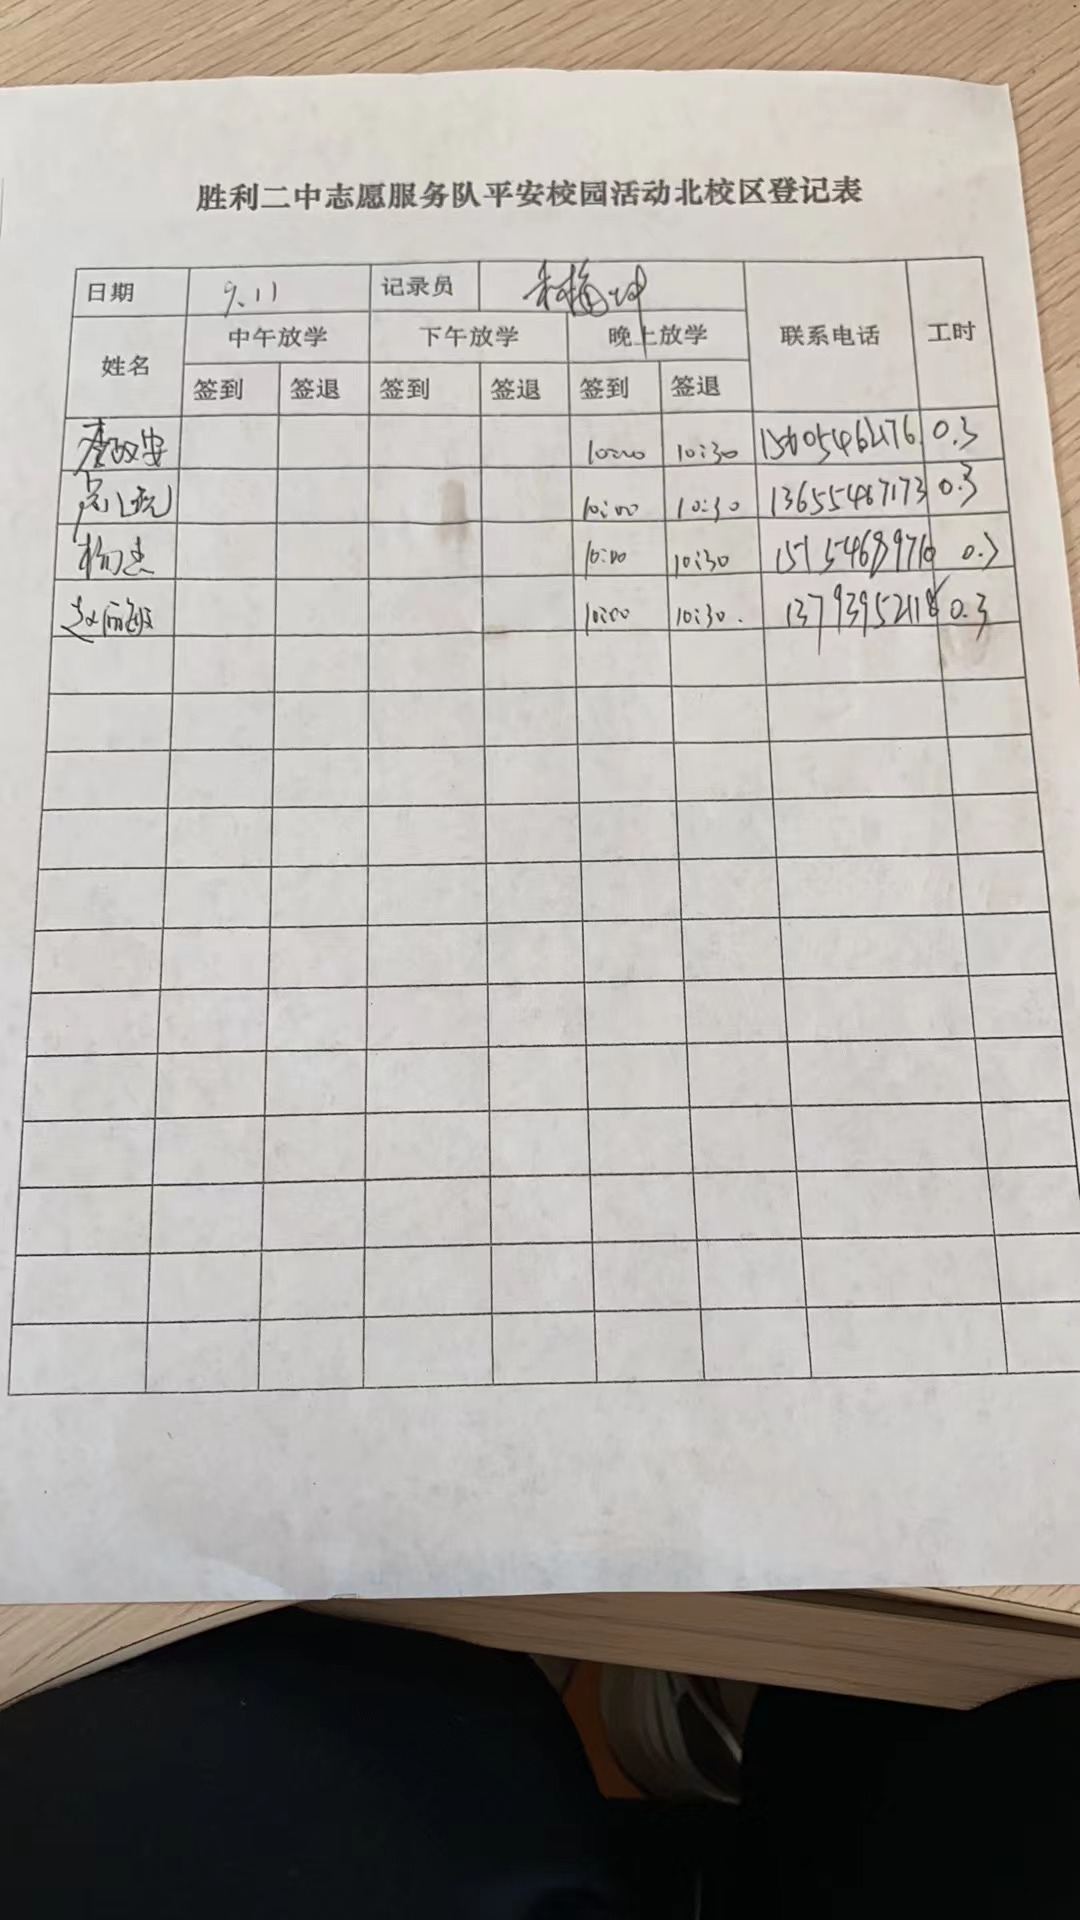 胜利二中志愿服务队平安校园活动北校区登记表
日期 9.11 记录员
姓名 中午放学 下午放学 晚上放学 联系电话 工时
签到 签退 签到 签退 签到 签退
10:00 10:30 15605462176 0.3
10:00 10:30 13655467173 0.3
杨杰 10:00 10:30 15154689716 0.3
赵丽 10:00 10:30. 13793952118 0.3